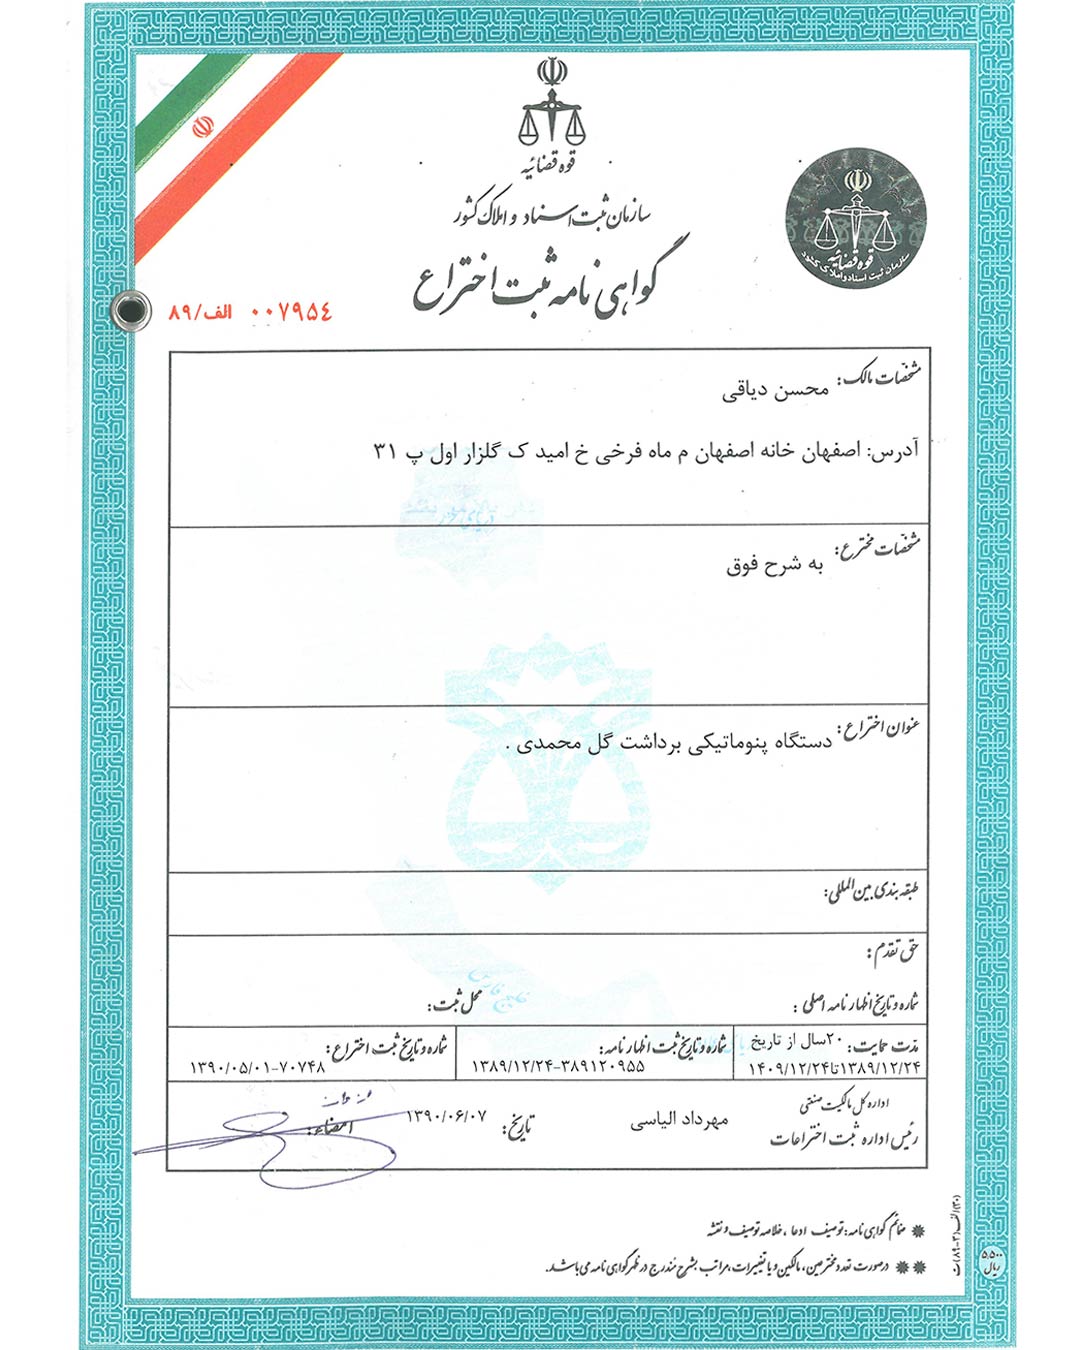 قوه قضائیه
سازمان ثبت اسناد و املاک کشور
گواهی نامه ثبت اختراع
قوه قضائیه
سازمان ثبت اسناد و املاک کشور
الف/۸۹ ۰۰۷۹۵۴
مشخصات مالک: محسن دیاقی
آدرس: اصفهان خانه اصفهان م ماه فرخی خ امید ک گلزار اول پ ۳۱
مشخصات مخترع: به شرح فوق
عنوان اختراع: دستگاه پنوماتیکی برداشت گل محمدی .
طبقه بندی بین المللی:
حق تقدم:
شماره و تاریخ اظهار نامه اصلی: محل ثبت:
مدت حمایت: ۲۰سال از تاریخ
۱۳۸۹/۱۲/۲۴تا۱۴۰۹/۱۲/۲۴
شماره و تاریخ ثبت اظهار نامه:
۱۳۸۹/۱۲/۲۴-۳۸۹۱۲۰۹۵۵
شماره و تاریخ ثبت اختراع:
۱۳۹۰/۰۵/۰۱-۷۰۷۴۸
اداره کل مالکیت صنعتی
رئیس اداره ثبت اختراعات
مهرداد الیاسی
تاریخ: ۱۳۹۰/۰۶/۰۷
امضاء:
ضمائم گواهی نامه: توصیف ادعا ، خلاصه توصیف و نقشه
درصورت تعدد مخترعین، مالکین و یا تغییرات، مراتب بشرح مندرج در ظهر گواهی نامه می باشد.
۵,۵۰۰
ریال